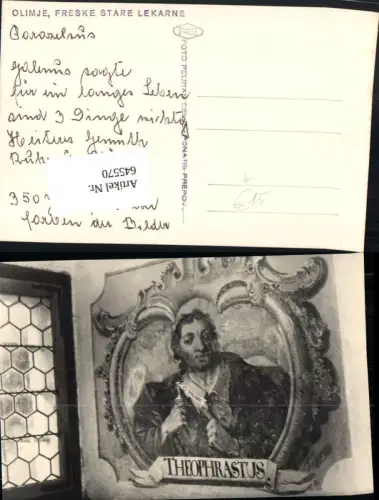 OLIMJE, FRESKE STARE LEKARNE
Paracelsus
Galenus sagte
für ein langes Leben
sind 3 Dinge wichtig
Heiteres Gemüth
Ruhe
350
farben der Bilder
Artikel Nr.
645570
€ 15
THEOPHRASTUS